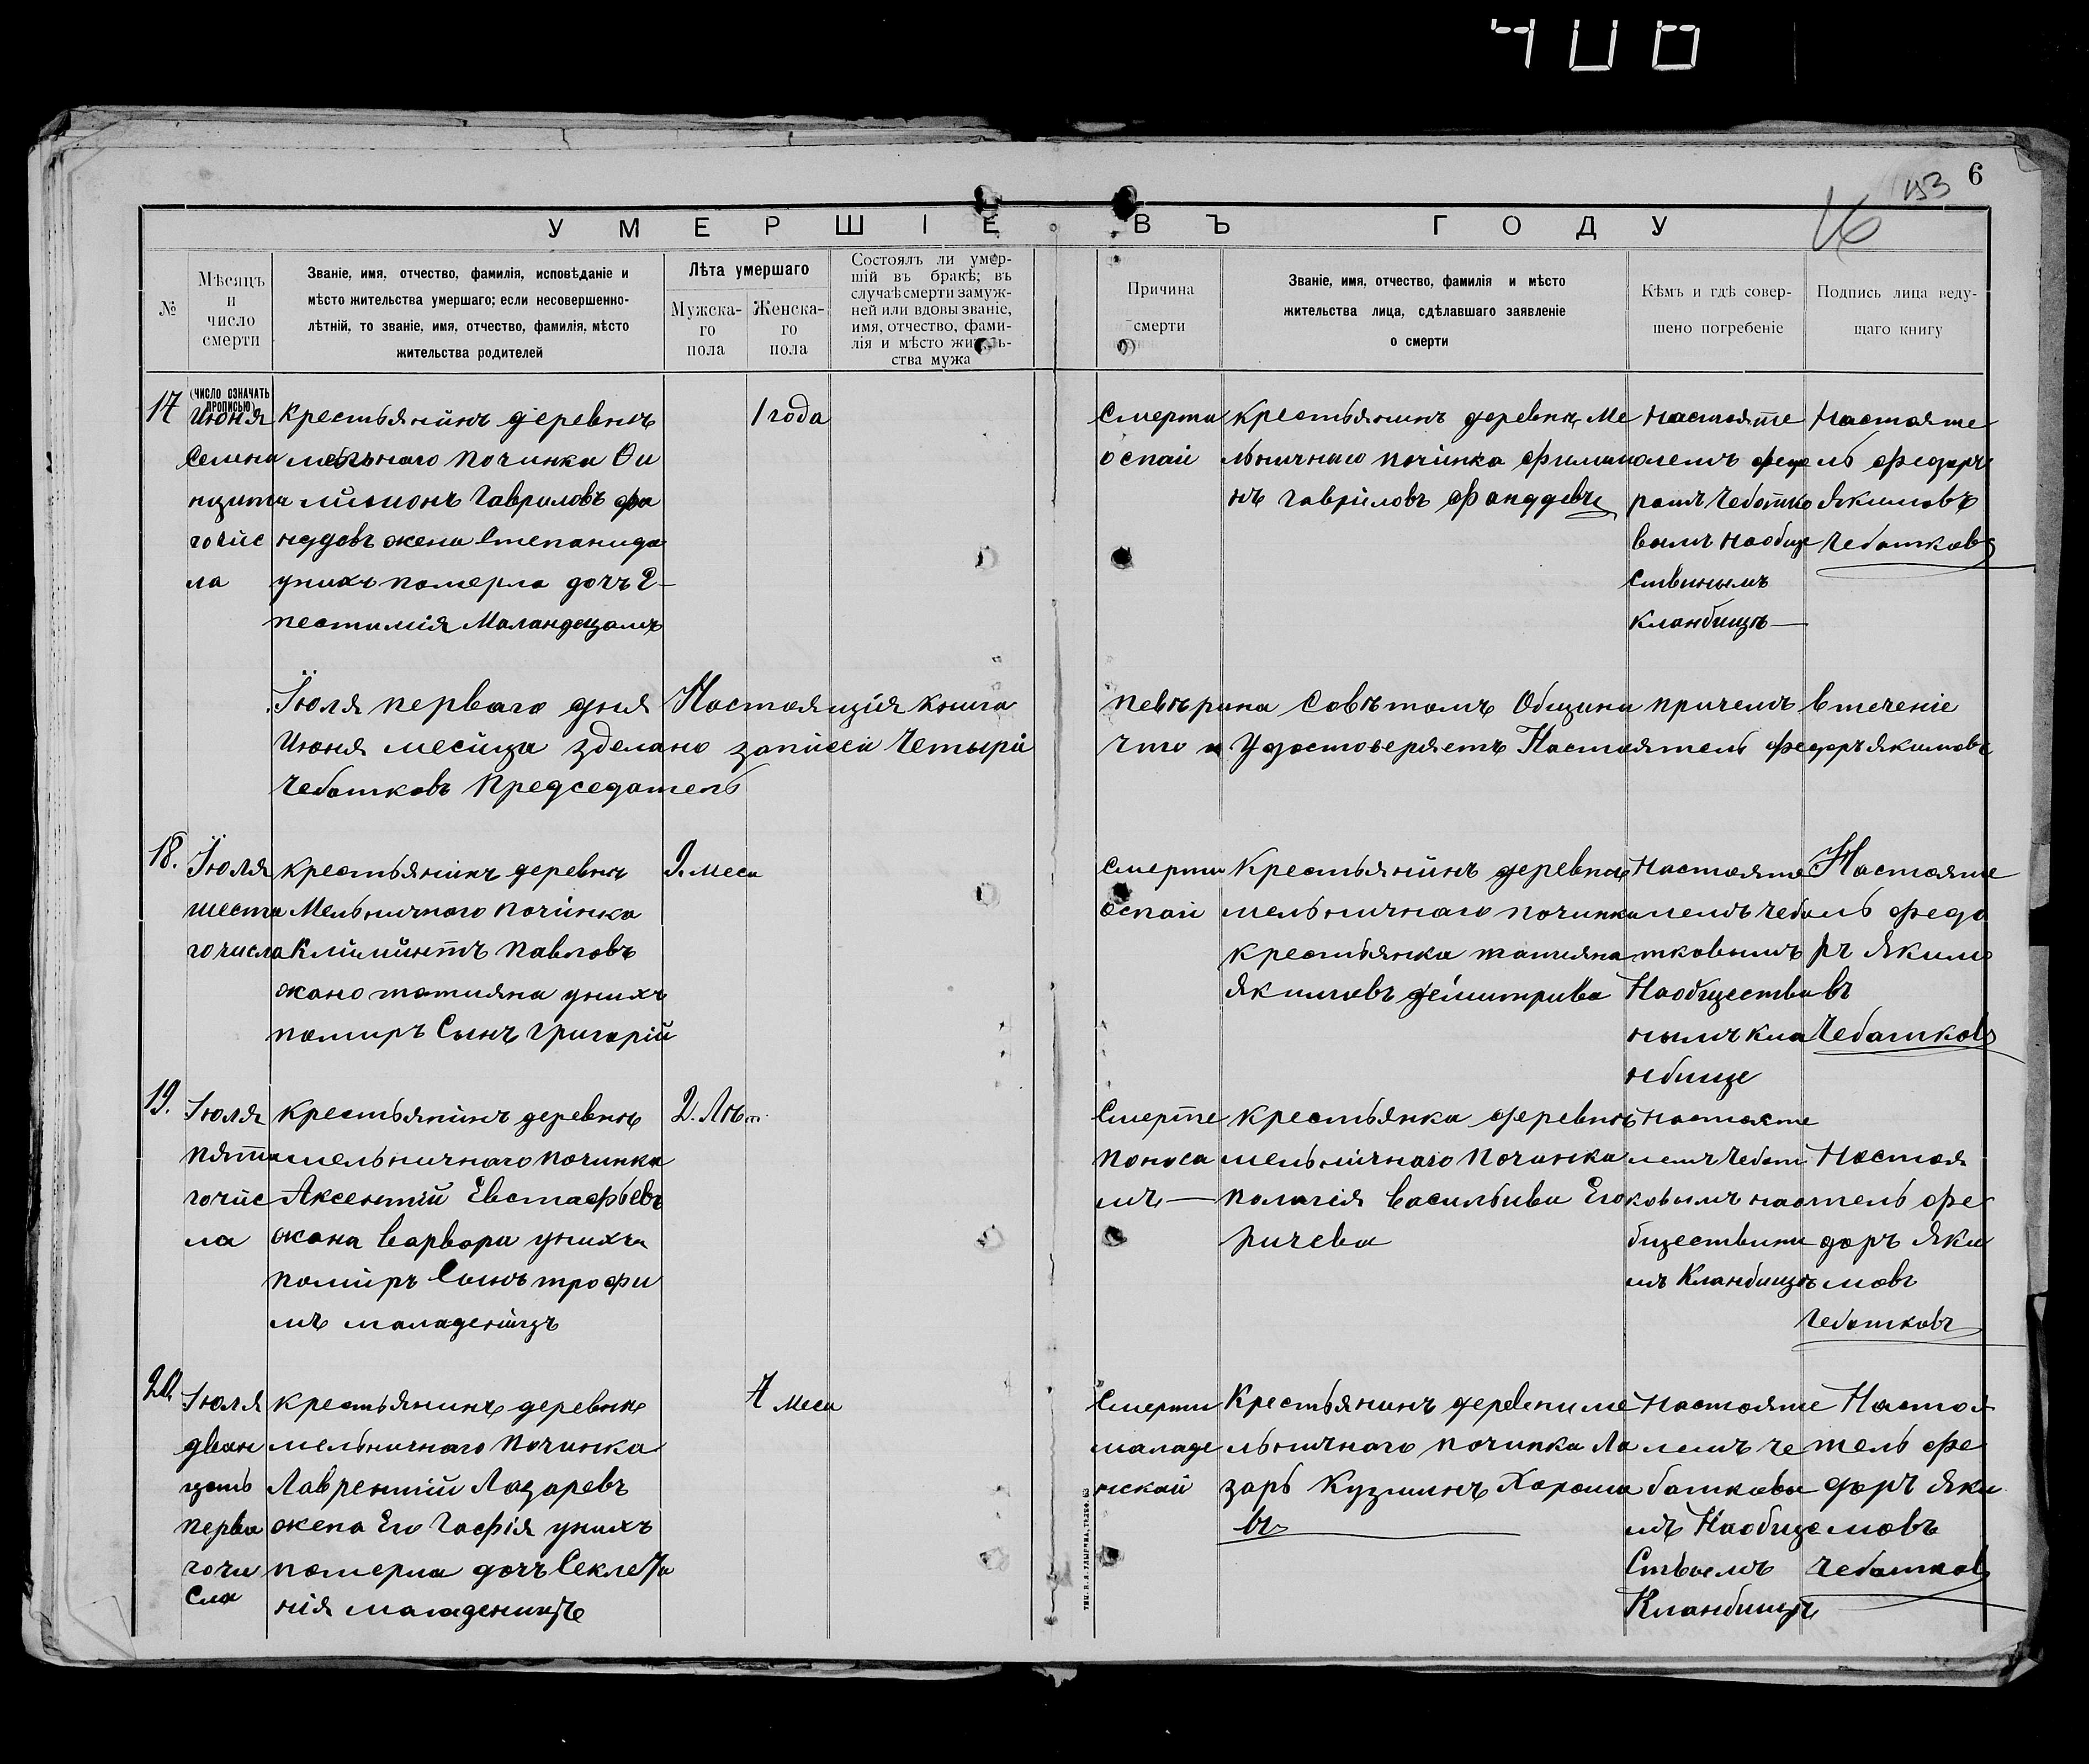 406
6
153
16
УМЕРШІЕ ВЪ ГОДУ
№
Мѣсяцъ
и
число
смерти
Званіе, имя, отчество, фамилія, исповѣданіе и
мѣсто жительства умершаго; если несовершенно-
лѣтній, то званіе, имя, отчество, фамилія, мѣсто
жительства родителей
Лѣта умершаго
Мужска-
го
пола
Женска-
го
пола
Состоялъ ли умер-
шій въ бракѣ; въ
случаѣ смерти замуж-
ней или вдовы званіе,
имя, отчество, фами-
лія и мѣсто житель-
ства мужа
Причина
смерти
Званіе, имя, отчество, фамилія и мѣсто
жительства лица, сдѣлавшаго заявленіе
о смерти
Кѣмъ и гдѣ совер-
шено погребеніе
Подпись лица веду-
щаго книгу
(число означать
прописью)
17
Июня
Семина
нцати
гочис
ла
крестьянинъ деревнѣ
починка Фи
лимонъ Гавриловъ фа
ндевъ жена Степанида
унихъ померла дочъ Е-
пестимія
1 года
Смерти
оспаи
крестьянинъ деревнѣ Ме
льничнаго починка филимо
нъ гавриловъ Фанддевъ
Настояте
лемъ федо
ромъ Чеботко
вымъ Наобще
ствинымъ
кланбищъ
Настояте
ль федоръ
Якимовъ
Чеботковъ
Іюля перваго дня Настоящія книга
Июня месица зделано записеи Четыри
Чеботковъ Председатель
певѣрина Совѣтомъ Общини причемъ втеченіе
что и Удостоверяетъ Настоятель федоръ якимовъ
18.
Іюля
шеста
гочисла
крестьянинъ деревнѣ
Мельничнаго починка
Климинтъ Павловъ
жано татияна унихъ
помиръ Сынъ григорій
9. меси
Смерти
оспаи
Крестьянинъ деревнѣ
мельничнаго починка
крестьянка татияна
Якимовъ демитрива
Настояте
лемъ чебо
тковымъ
Наобществи
нымъ кла
нбище
Настояте
ль федо
ръ Якимо
въ
Чеботковъ
19.
Іюля
пята
гочис
ла
крестьянинъ деревнѣ
мельничнаго починка
Аксентій Евстафьевъ
жана варвара унихъ
помиръ Сынъ трофи
мъ маладеницъ
2. Лѣт
Смерте
поноса
мъ
крестьянка деревнѣ
мельничнаго починка
палагія васильива Его
ричева
настояте
лемъ Чебот
ковымъ нао
бществини
мъ Кланбищъ
Настоя
тель фе
доръ Яки
мовъ
Чеботковъ
20
Іюля
дван
цать
перва
гочи
сла
крестьянинъ деревнѣ
мельничнаго починка
Лаврентій Лазаревъ
жена Его Гафія унихъ
померла дочъ
нія маладеницъ
7 меси
Смерти
маладе
нской
Крестьянинъ деревни ме
льничнаго починка Ла
зарь Кузминъ Хароша
въ
Настояте
лемъ че
боткови
мъ Наобще
Ствиемъ
Кланбищъ
Настоя
тель фе
доръ Яки
мовъ
Чеботковъ